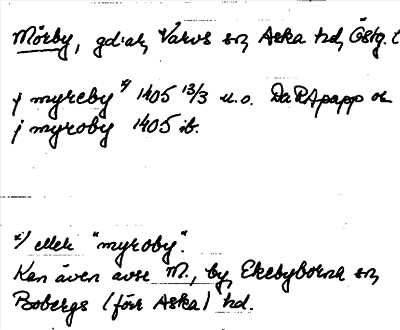 Mörby, gd:ar, Varvs sn, Aska hd, Östg.
j myreby *) 1405 13/3 u.o. DaRApapp or
j myroby 1405 ib.
*) eller "myroby".
Kan även avse M., by, Ekebyborna sn,
Bobergs (förr Aska) hd.